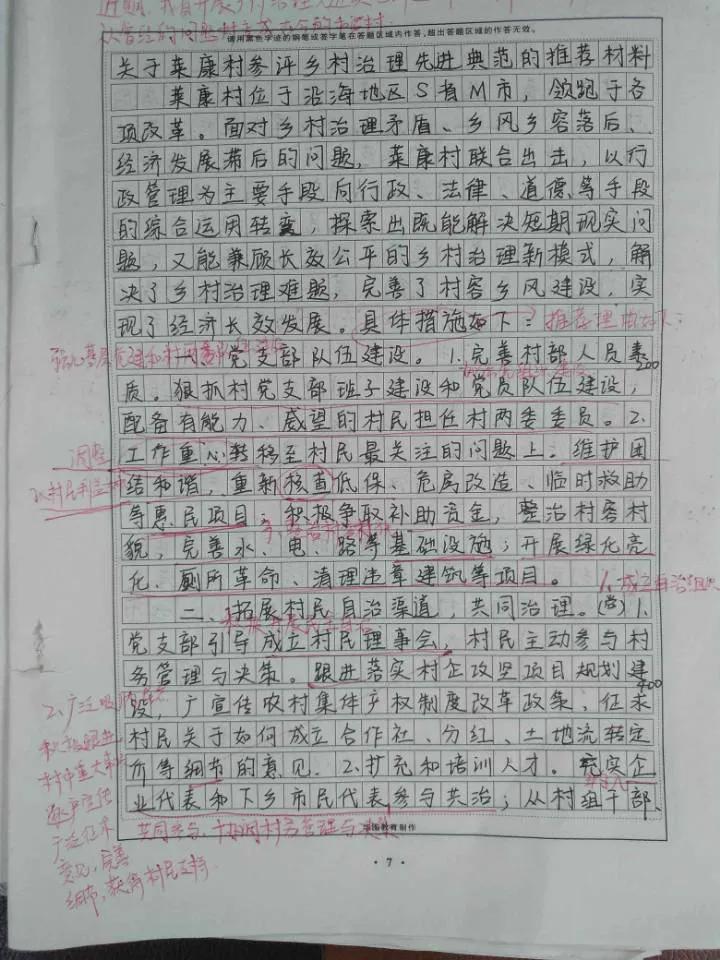 请用黑色字迹的钢笔或签字笔在答题区域内作答,超出答题区域的作答无效。
关于莱康村参评乡村治理先进典范的推荐材料
莱康村位于沿海地区S省M市,领跑于各
项改革。面对乡村治理矛盾、乡风乡容落后、
经济发展滞后的问题,莱康村联合出击,以行
政管理为主要手段向行政、法律、道德等手段
的综合运用转变,探索出既能解决短期现实问
题,又能兼顾长效公平的乡村治理新模式,解
决了乡村治理难题,完善了村容乡风建设,实
现了经济长效发展。具体措施如下:推荐理由如下:
一、党支部队伍建设。1.完善村部人员素
200
质。狠抓村党支部班子建设和党员队伍建设,
配备有能力、威望的村民担任村两委委员。2.
调整
工作重心转移至村民最关注的问题上:维护团
以村民利益
结和谐,重新核查低保、危房改造、临时救助
等惠民项目。积极争取补助资金,整治村容村
貌,完善水、电、路等基础设施;开展绿化亮
化、厕所革命、清理违章建筑等项目。
1.成立自治组织
二、拓展村民自治渠道,共同治理。(党)1.
党支部引导成立村民理事会,村民主动参与村
务管理与决策。跟进落实村企攻坚项目规划建
400
设,广宣传农村集体产权制度改革政策、征求
村民关于如何成立合作社、分红、土地流转定
价等细节的意见.2.扩充和培训人才。充实企
业代表和下乡市民代表参与共治;从村组干部、
2、广泛
积极跟进
村中重大
广泛征求
意见,完善
细节,获得村民支持.
共同参与、协调村务管理与决策
教育制作
·7·